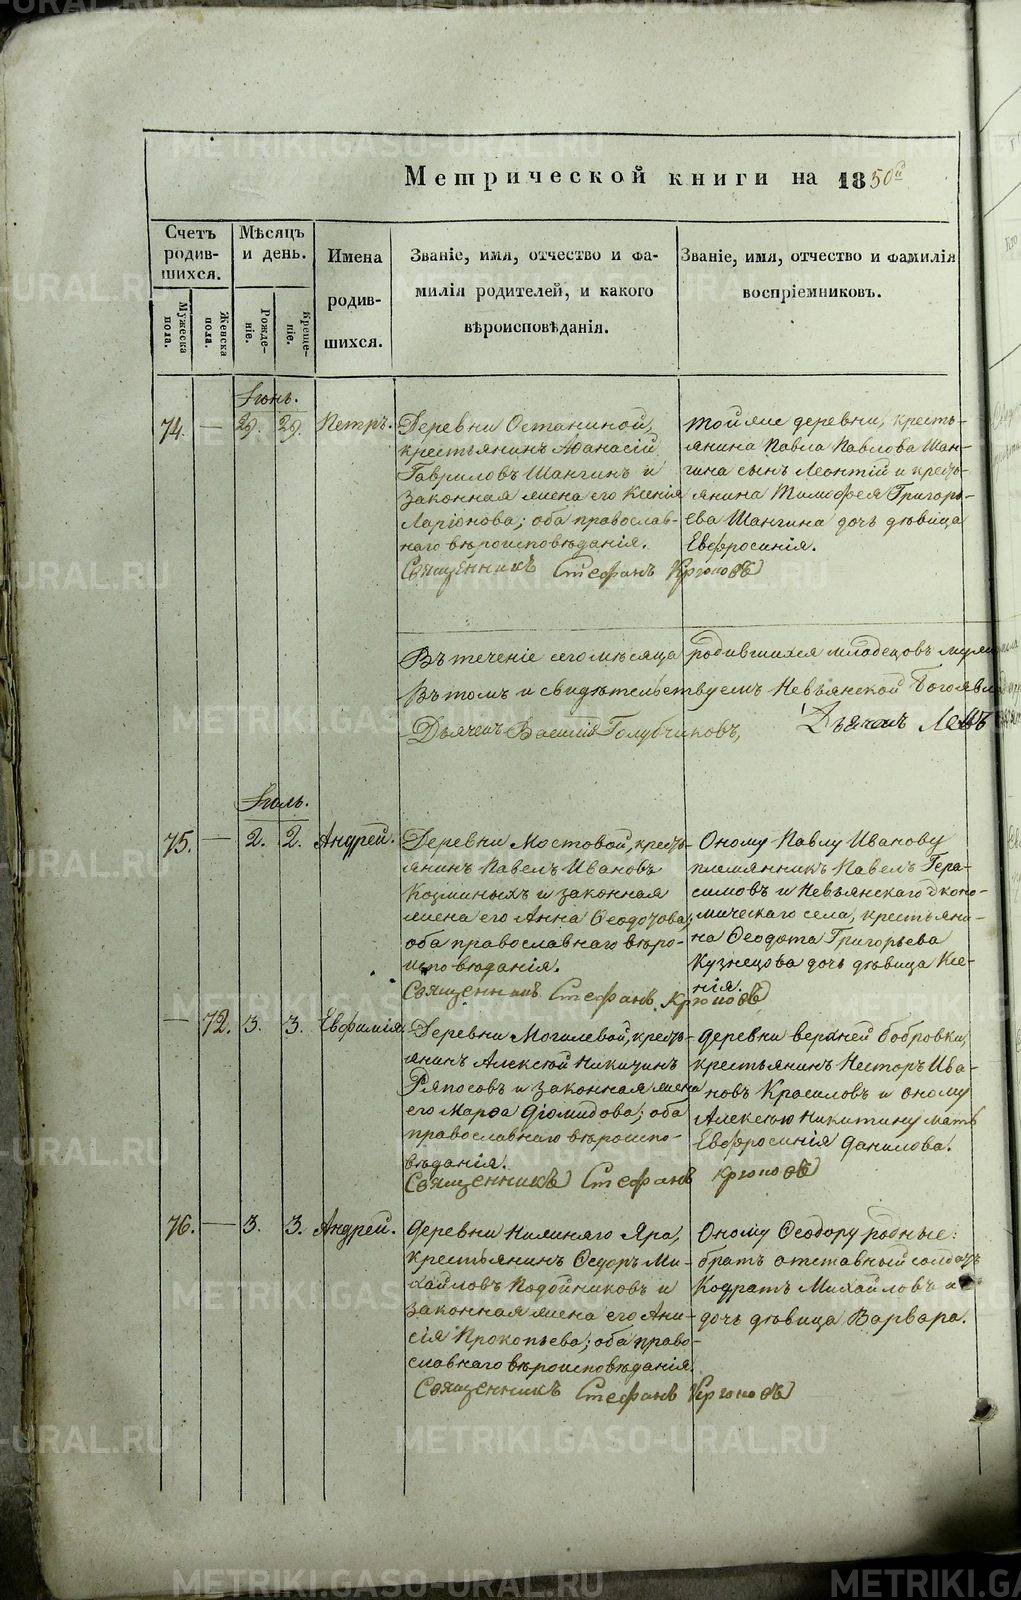 Метрической книги на 1850й
Счетъ родив-шихся.
Мѣсяцъ и день.
Имена родив-шихся.
Званіе, имя, отчество и фа-милія родителей, и какого вѣроисповѣданія.
Званіе, имя, отчество и фамилія воспріемниковъ.
Мужеска пола.
Женска пола.
Рожде-ніе.
Креще-ніе.
Іюнь.
74. — 29. 29. Петръ.
Деревни Останиной,
крестьянинъ Аѳанасій
Гавриловъ Шангинъ и
законная жена его Ксенія
Ларіонова; оба православ-
наго вѣроисповѣданія.
Священникъ Стефанъ Крюковъ
тойже деревни, кресть-
янина Павла Павлова Шан-
гина сынъ Леонтій и кресть-
янина Тимофея Григорь-
ева Шангина дочь дѣвица
Евфросинія.
Въ теченіе сего мѣсяца родившихся младенцовъ
Въ томъ и свидѣтельствуемъ Невьянской Богоявл
Дьячекъ Василій Голубчиковъ, Дьячекъ Левъ
Іюль.
75. — 2. 2. Андрей.
Деревни Мостовой, кресть-
янинъ Павелъ Ивановъ
Козминыхъ и законная
жена его Анна Ѳеодотова;
оба православнаго вѣро-
исповѣданія.
Священникъ Стефанъ Крюковъ
Оному Павлу Иванову
племянникъ Павелъ Гера-
симовъ и Невьянскаго Эконо-
мическаго села, крестьяни-
на Ѳеодота Григорьева
Кузнецова дочь дѣвица Ксе-
нія.
— 72. 3. 3. Евфимія.
Деревни Могилевой, кресть-
янинъ Алексѣй Никитинъ
Ряпосовъ и законная жена
его Марфа Діомидова; оба
православнаго вѣроиспо-
вѣданія.
Священникъ Стефанъ Крюковъ
деревни верхней Бобровки,
крестьянинъ Несторъ Ива-
новъ Красиловъ и оному
Алексѣю Никитину мать
Евфросинія Данилова.
76. — 3. 3. Андрей.
деревни Нижняго Яра,
крестьянинъ Ѳедоръ Ми-
хайловъ Подойниковъ и
законная жена его Ани-
сія Прокопьева; оба право-
славнаго вѣроисповѣданія.
Священникъ Стефанъ Крюковъ
Оному Ѳеодору родные:
братъ отставный солдатъ
Кодратъ Михайловъ и
дочь дѣвица Варвара.
METRIKI.GASO-URAL.RU